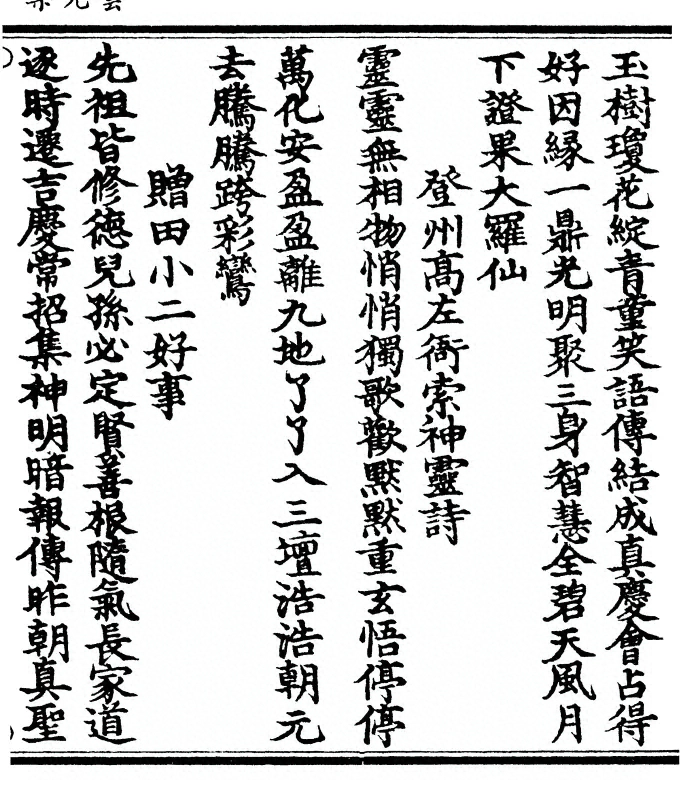 玉樹瓊花綻青童笑語傳結成真慶會占得
好因緣一鼎光明聚三身智慧全碧天風月
下證果大羅仙
登州高左衙索神靈詩
靈靈無相物悄悄獨歌歡默默重玄悟停停
萬化安盈盈離九地了了入三壇浩浩朝元
去騰騰跨彩鸞
贈田小二好事
先祖皆修德兒孫必定賢善根隨氣長家道
逐時遷吉慶常招集神明暗報傳昨朝真聖